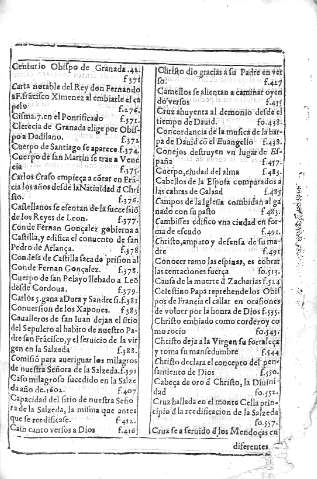 Centurio Obispo de Granada. 42.
f.371
Carta notable del Rey don Fernando
a F. Frãcisco Ximenez al embiarle el ca
pelo
f.276.
Cisma 7. en el Pontificado f.371.
Clerecia de Granada elige por Obis-
po a Dadilano.
f.372.
Cuerpo de Santiago se aparece f.374.
Cuerpo de san Martin se trae a Vene
cia
f.375.
Carlos Craso empieça a cõtar en Frã
cia los años desde la Natiuidad d Chri
sto.
f.376.
Castellanos se esentan de la successiõ
de los Reyes de Leon. f.377.
Conde Fernan Gonçalez gobierna a
Castilla, y edifica el conuento de san
Pedro de Arlança. f.378
Condesa de Castilla saca de prision al
Conde Fernan Gonçalez. f.378.
Cuerpo de san Pelayo lleuado a Leõ
desde Cordoua. f.379.
Carlos 5. gana a Dura y Sandre S. f.381
Conuersion de los Xapones. f.385
Caualleros de san Iuan dejan el sitio
del Sepulcro al habito de nuestro Pa
dre san Frãcisco, y el seruicio de la vir
gen en la Salzeda f.388.
Comissiõ para aueriguar los milagros
de nuestra Señora de la Salzeda. f.391
Caso milagroso sucedido en la Salze
da año de. 1602. f.407
Capacidad del sitio de nuestra Seño
ra de la Salzeda, la misma que antes
que se reedificase. f.412.
Cain canto versos a Dios f.416
Christo dio gracias à su Padre en ver
so. f.427
Camellos se alientan a caminar oyen
do versos f.435
Cruz ahuyenta al demonio desde el
tiempo de Dauid. fo.438.
Concordancia de la musica de la har-
pa de Dauid cõ el Euangelio f.438.
Conejos destruyen vn lugar de Es-
paña f.457.
Cuerpo, ciudad del alma f.483.
Cabellos de la Esposa comparados a
las cabras de Galaad f.485
Campos de la Iglesia combidan al ga
nado con su pasto f.483.
Cambises edifico vna ciudad en for-
ma de escudo f.491.
Christo, amparo y defensa de su ma-
dre f.491
Conocer ramo las espinas, es cobrar
las tentaciones fuerça fo.513.
Causa de la muerte d Zacharias. f.514
Celestino Papa reprehende los Obis
pos de Francia el callar en ocasiones
de volver por la honra de Dios f.535.
Christo embiado como cordero y co
mo rocio fo.543.
Christo deja a la Virgen su fortaleça
y toma su mansedumbre f.544
Christo declara el concepto del pen-
samiento de Dios f.550.
Cabeça de oro d Christo, la Diuini-
dad fo.552.
Cruz hallada en el monte Celia prin-
cipio d la reedificacion de la Salzeda
fo.557.
Cruz se a seruido d los Mendoças en
diferentes